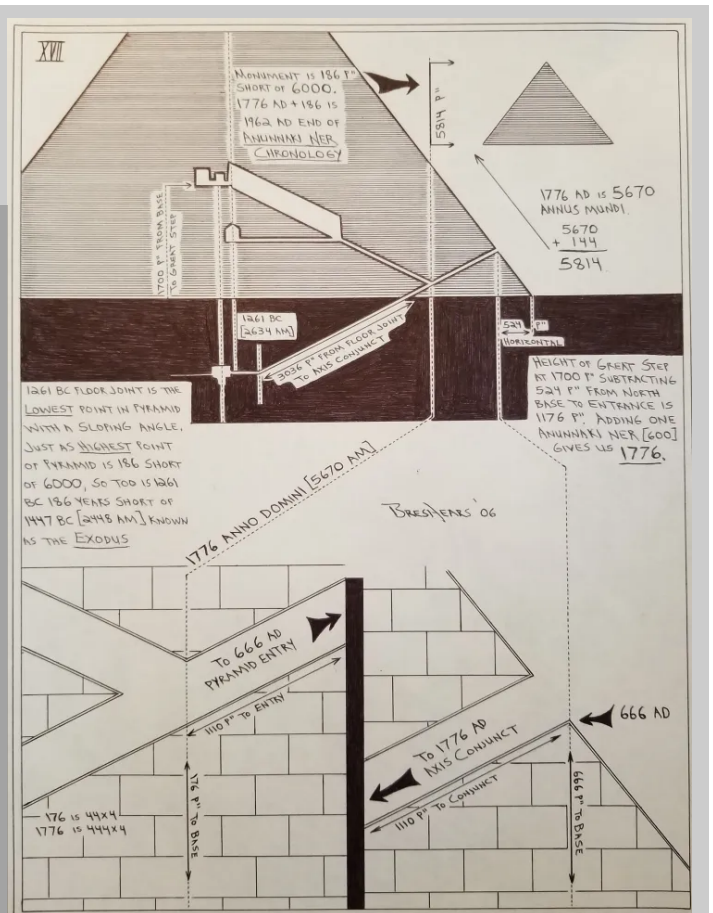 XVII
MONUMENT IS 186 P"
SHORT OF 6000.
1776 AD + 186 IS
1962 AD END OF
ANUNNAKI NER
CHRONOLOGY
5814 P"
1776 AD IS 5670
ANNUS MUNDI.
5670
+ 144
5814
1700 P" FROM BASE
TO GREAT STEP
1261 BC
[2634 AM]
3036 P" FROM FLOOR JOINT
TO AXIS CONJUNCT
524 P"
HORIZONTAL
1261 BC FLOOR JOINT IS THE
LOWEST POINT IN PYRAMID
WITH A SLOPING ANGLE,
JUST AS HIGHEST POINT
OF PYRAMID IS 186 SHORT
OF 6000, SO TOO IS 1261
BC 186 YEARS SHORT OF
1447 BC [2448 AM] KNOWN
AS THE EXODUS
HEIGHT OF GREAT STEP
AT 1700 P" SUBTRACTING
524 P" FROM NORTH
BASE TO ENTRANCE IS
1176 P". ADDING ONE
ANUNNAKI NER [600]
GIVES US 1776.
1776 ANNO DOMINI [5670 AM]
BRESHEARS '06
TO 666 AD
PYRAMID ENTRY
1110 P" TO ENTRY
176 P" TO BASE
176 IS 44X4
1776 IS 444X4
TO 1776 AD
AXIS CONJUNCT
1110 P" TO CONJUNCT
666 AD
666 P" TO BASE